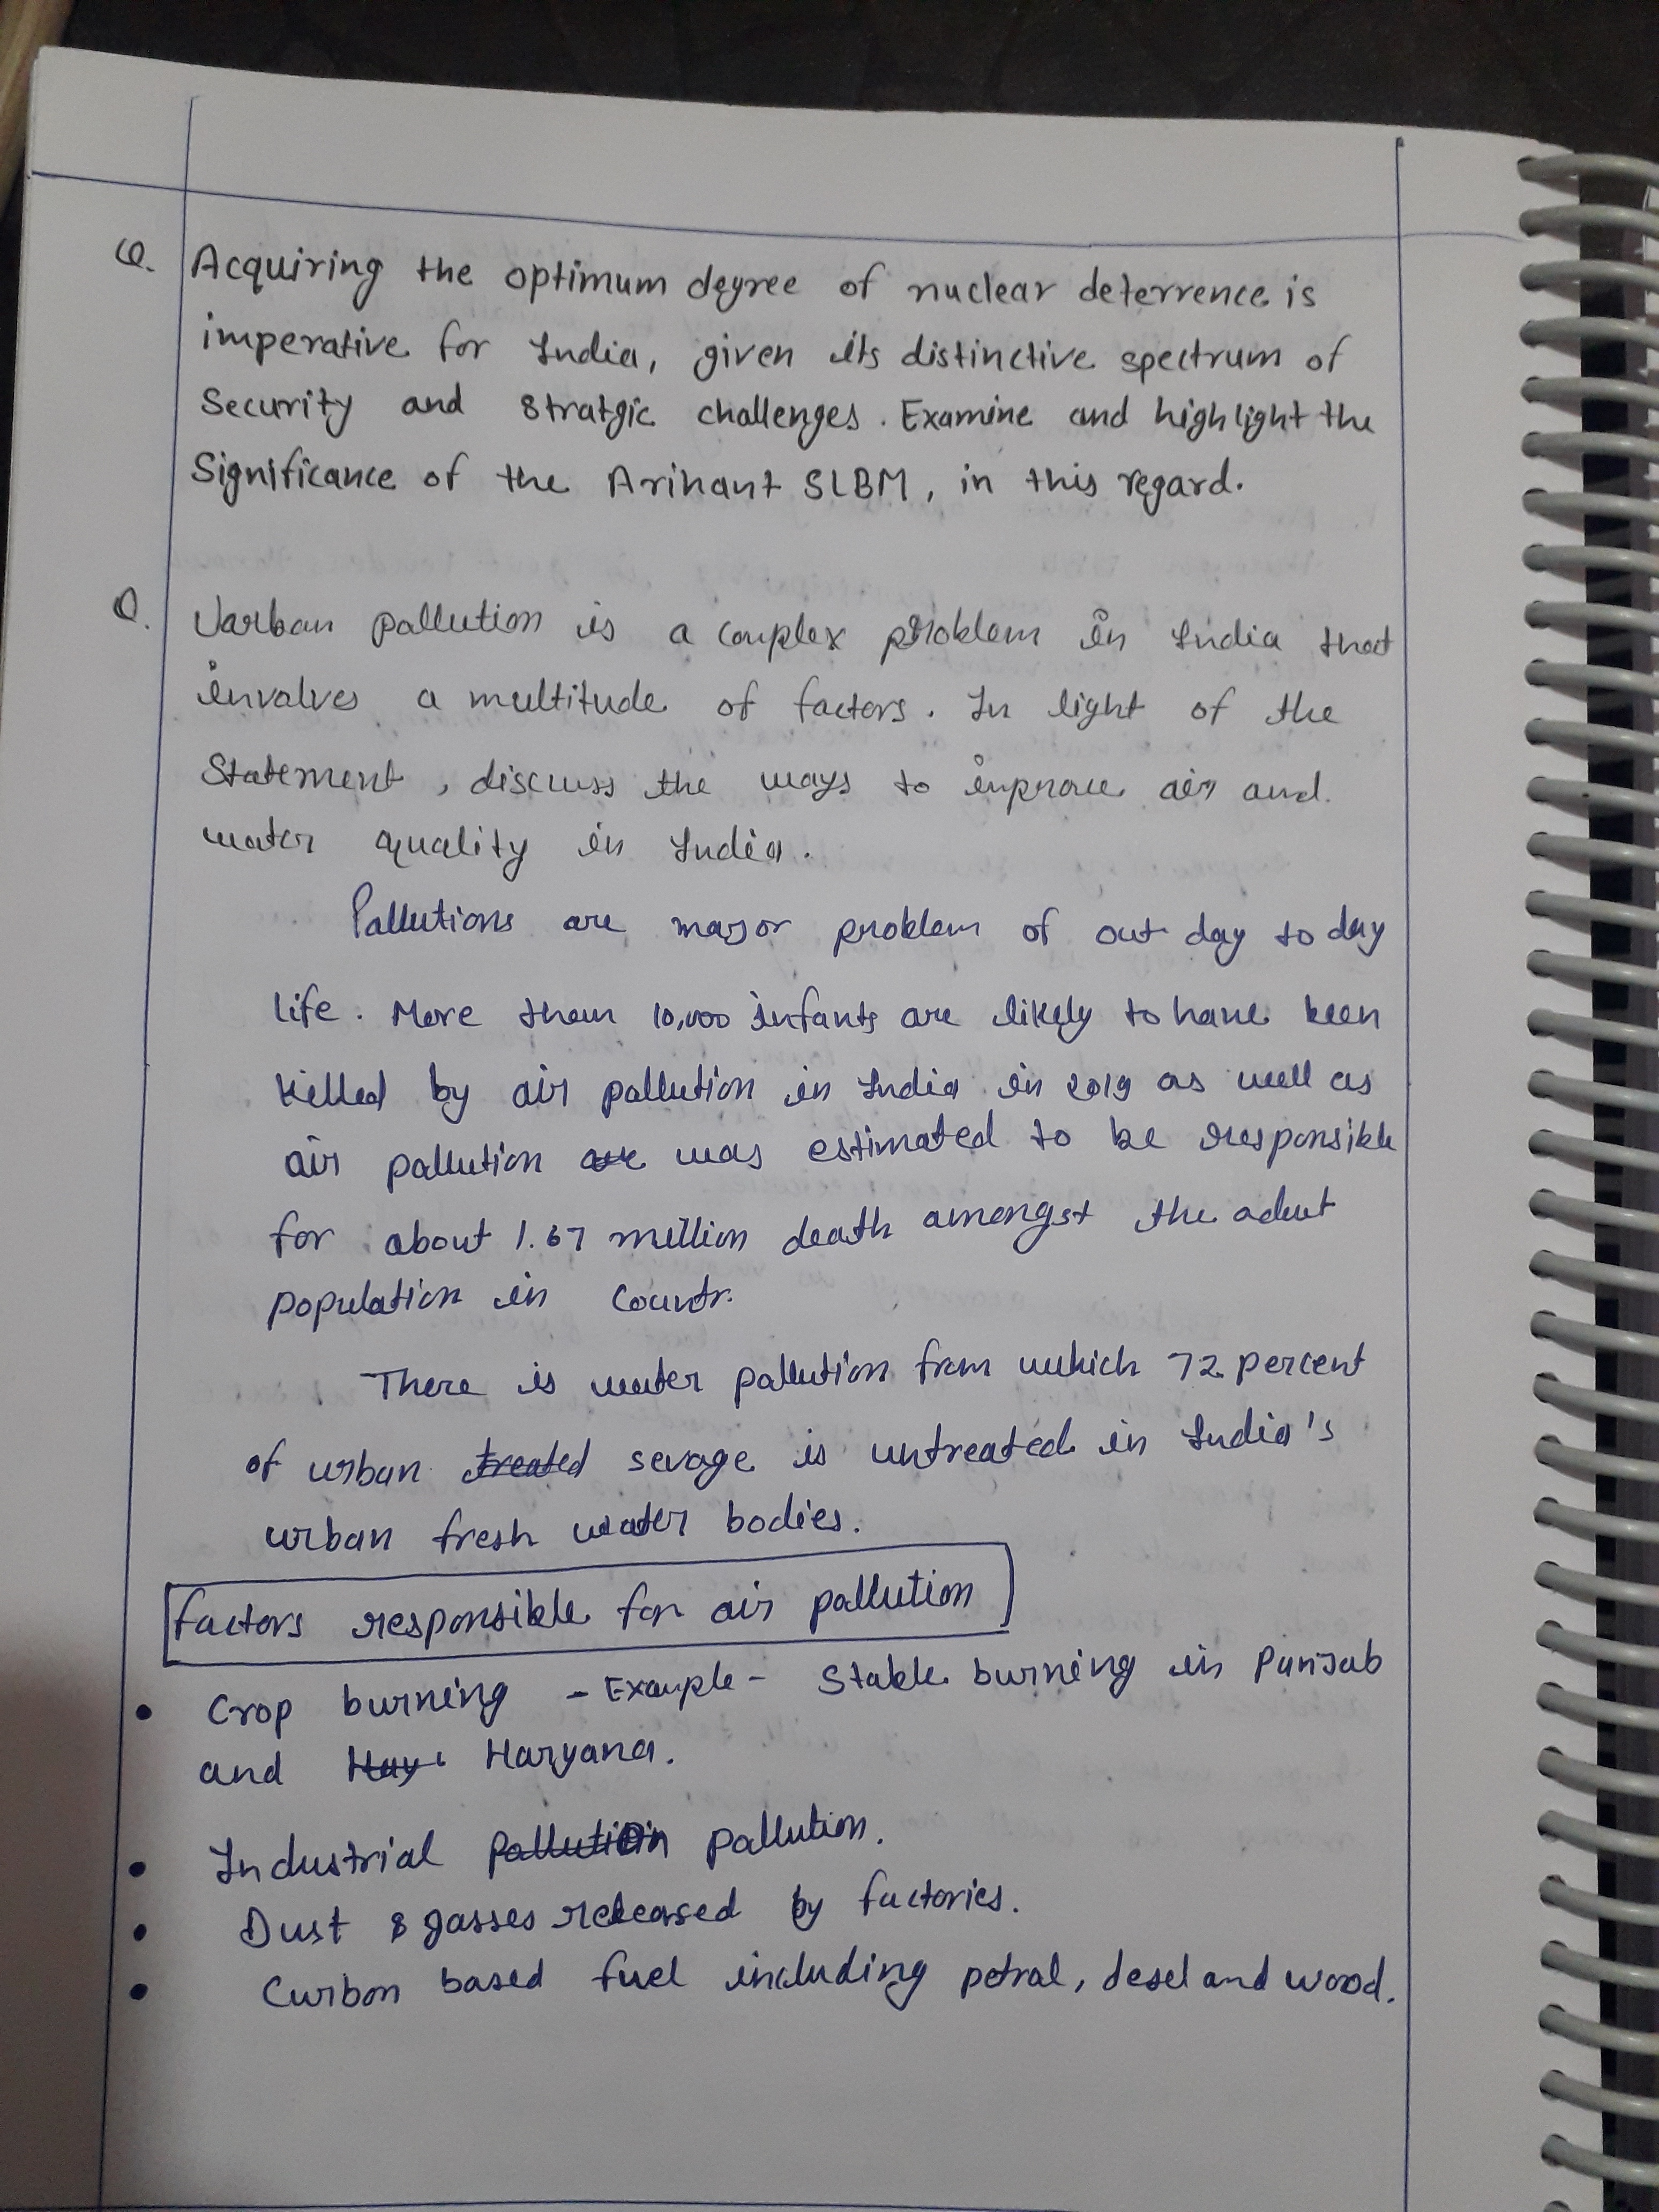 Q. Acquiring the optimum degree of nuclear deterrence is
imperative for India, given its distinctive spectrum of
Security and Stratgic challenges. Examine and highlight the
Significance of the Arihant SLBM, in this regard.
Q. Uarban pallution is a complex problem in India that
involves a multitude of factors. In light of the
Statement, discuss the ways to improve air and
water quality in India.
Pallutions are major problem of out day to day
life. More than 10,000 infants are likely to have been
killed by air pallution in India in 2019 as well as
air pallution are was estimated to be responsible
for about 1.67 million death amongst the adult
population in Countr.
There is water pallution from which 72 percent
of urban treated sevage is untreated in India's
urban fresh water bodies.
factors responsible for air pallution
• Crop burning - Example - Stable burning in Punjab
and Hay Haryana.
• Industrial pallution pallution.
• Dust & gasses released by factories.
• Curbon based fuel including petral, desel and wood.